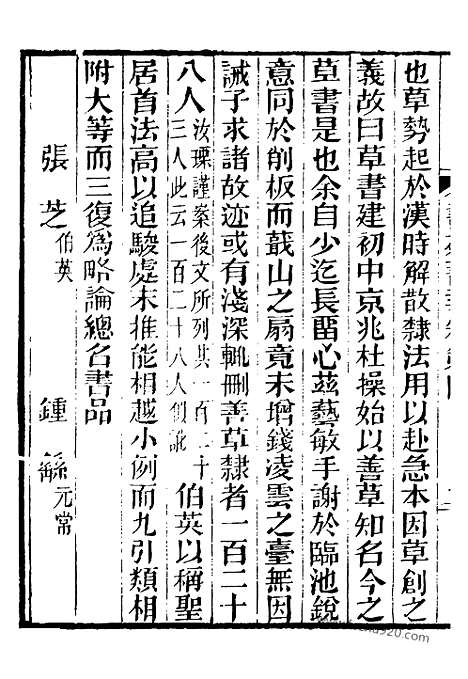 也草勢起於漢時解散隸法用以赴急本因草創之
義故曰草書建初中京兆杜操始以善草知名今之
草書是也余自少迄長留心茲藝敏手謝於臨池銳
意同於削板而蕺山之扇竟未增錢凌雲之臺無因
誡子求諸故迹或有淺深輒刪善草隸者一百二十
八人
汝瑮謹案後文所列共一百二十
三人此云一百二十八人似訛
伯英以稱聖
居首法高以追駿處末推能相越小例而九引類相
附大等而三復爲略論總名書品
張芝 伯英 鍾繇 元常